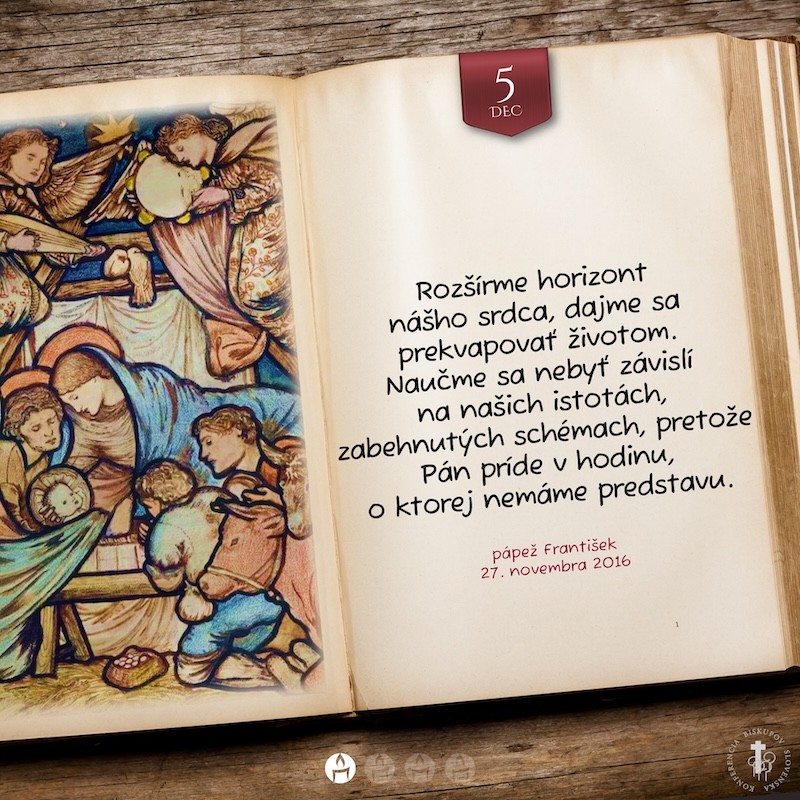 5
DEC
Rozšírme horizont
nášho srdca, dajme sa
prekvapovať životom.
Naučme sa nebyť závislí
na našich istotách,
zabehnutých schémach, pretože
Pán príde v hodinu,
o ktorej nemáme predstavu.
pápež František
27. novembra 2016
1
KONFERENCIA BISKUPOV SLOVENSKA